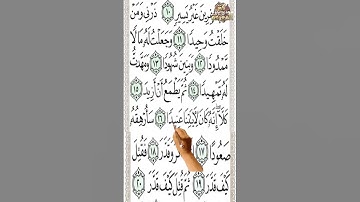 فِرِينَ غَيْرُ يَسِيرٍ ١٠ ذَرْنِي وَمَنْ
خَلَقْتُ وَحِيدًا ١١ وَجَعَلْتُ لَهُ مَالًا
مَمْدُودًا ١٢ وَبَنِينَ شُهُودًا ١٣ وَمَهَّدتُّ
لَهُ تَمْهِيدًا ١٤ ثُمَّ يَطْمَعُ أَنْ أَزِيدَ ١٥
كَلَّا إِنَّهُ كَانَ لِآيَاتِنَا عَنِيدًا ١٦ سَأُرْهِقُهُ
صَعُودًا ١٧ كَّرَ وَقَدَّرَ ١٨ فَقُتِلَ
كَيْفَ قَدَّرَ ١٩ ثُمَّ قُتِلَ كَيْفَ قَدَّرَ ٢٠